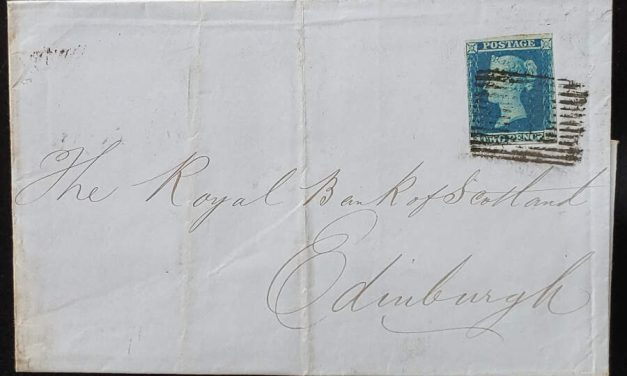 POSTAGE
TWO PENCE
The Royal Bank of Scotland
Edinburgh